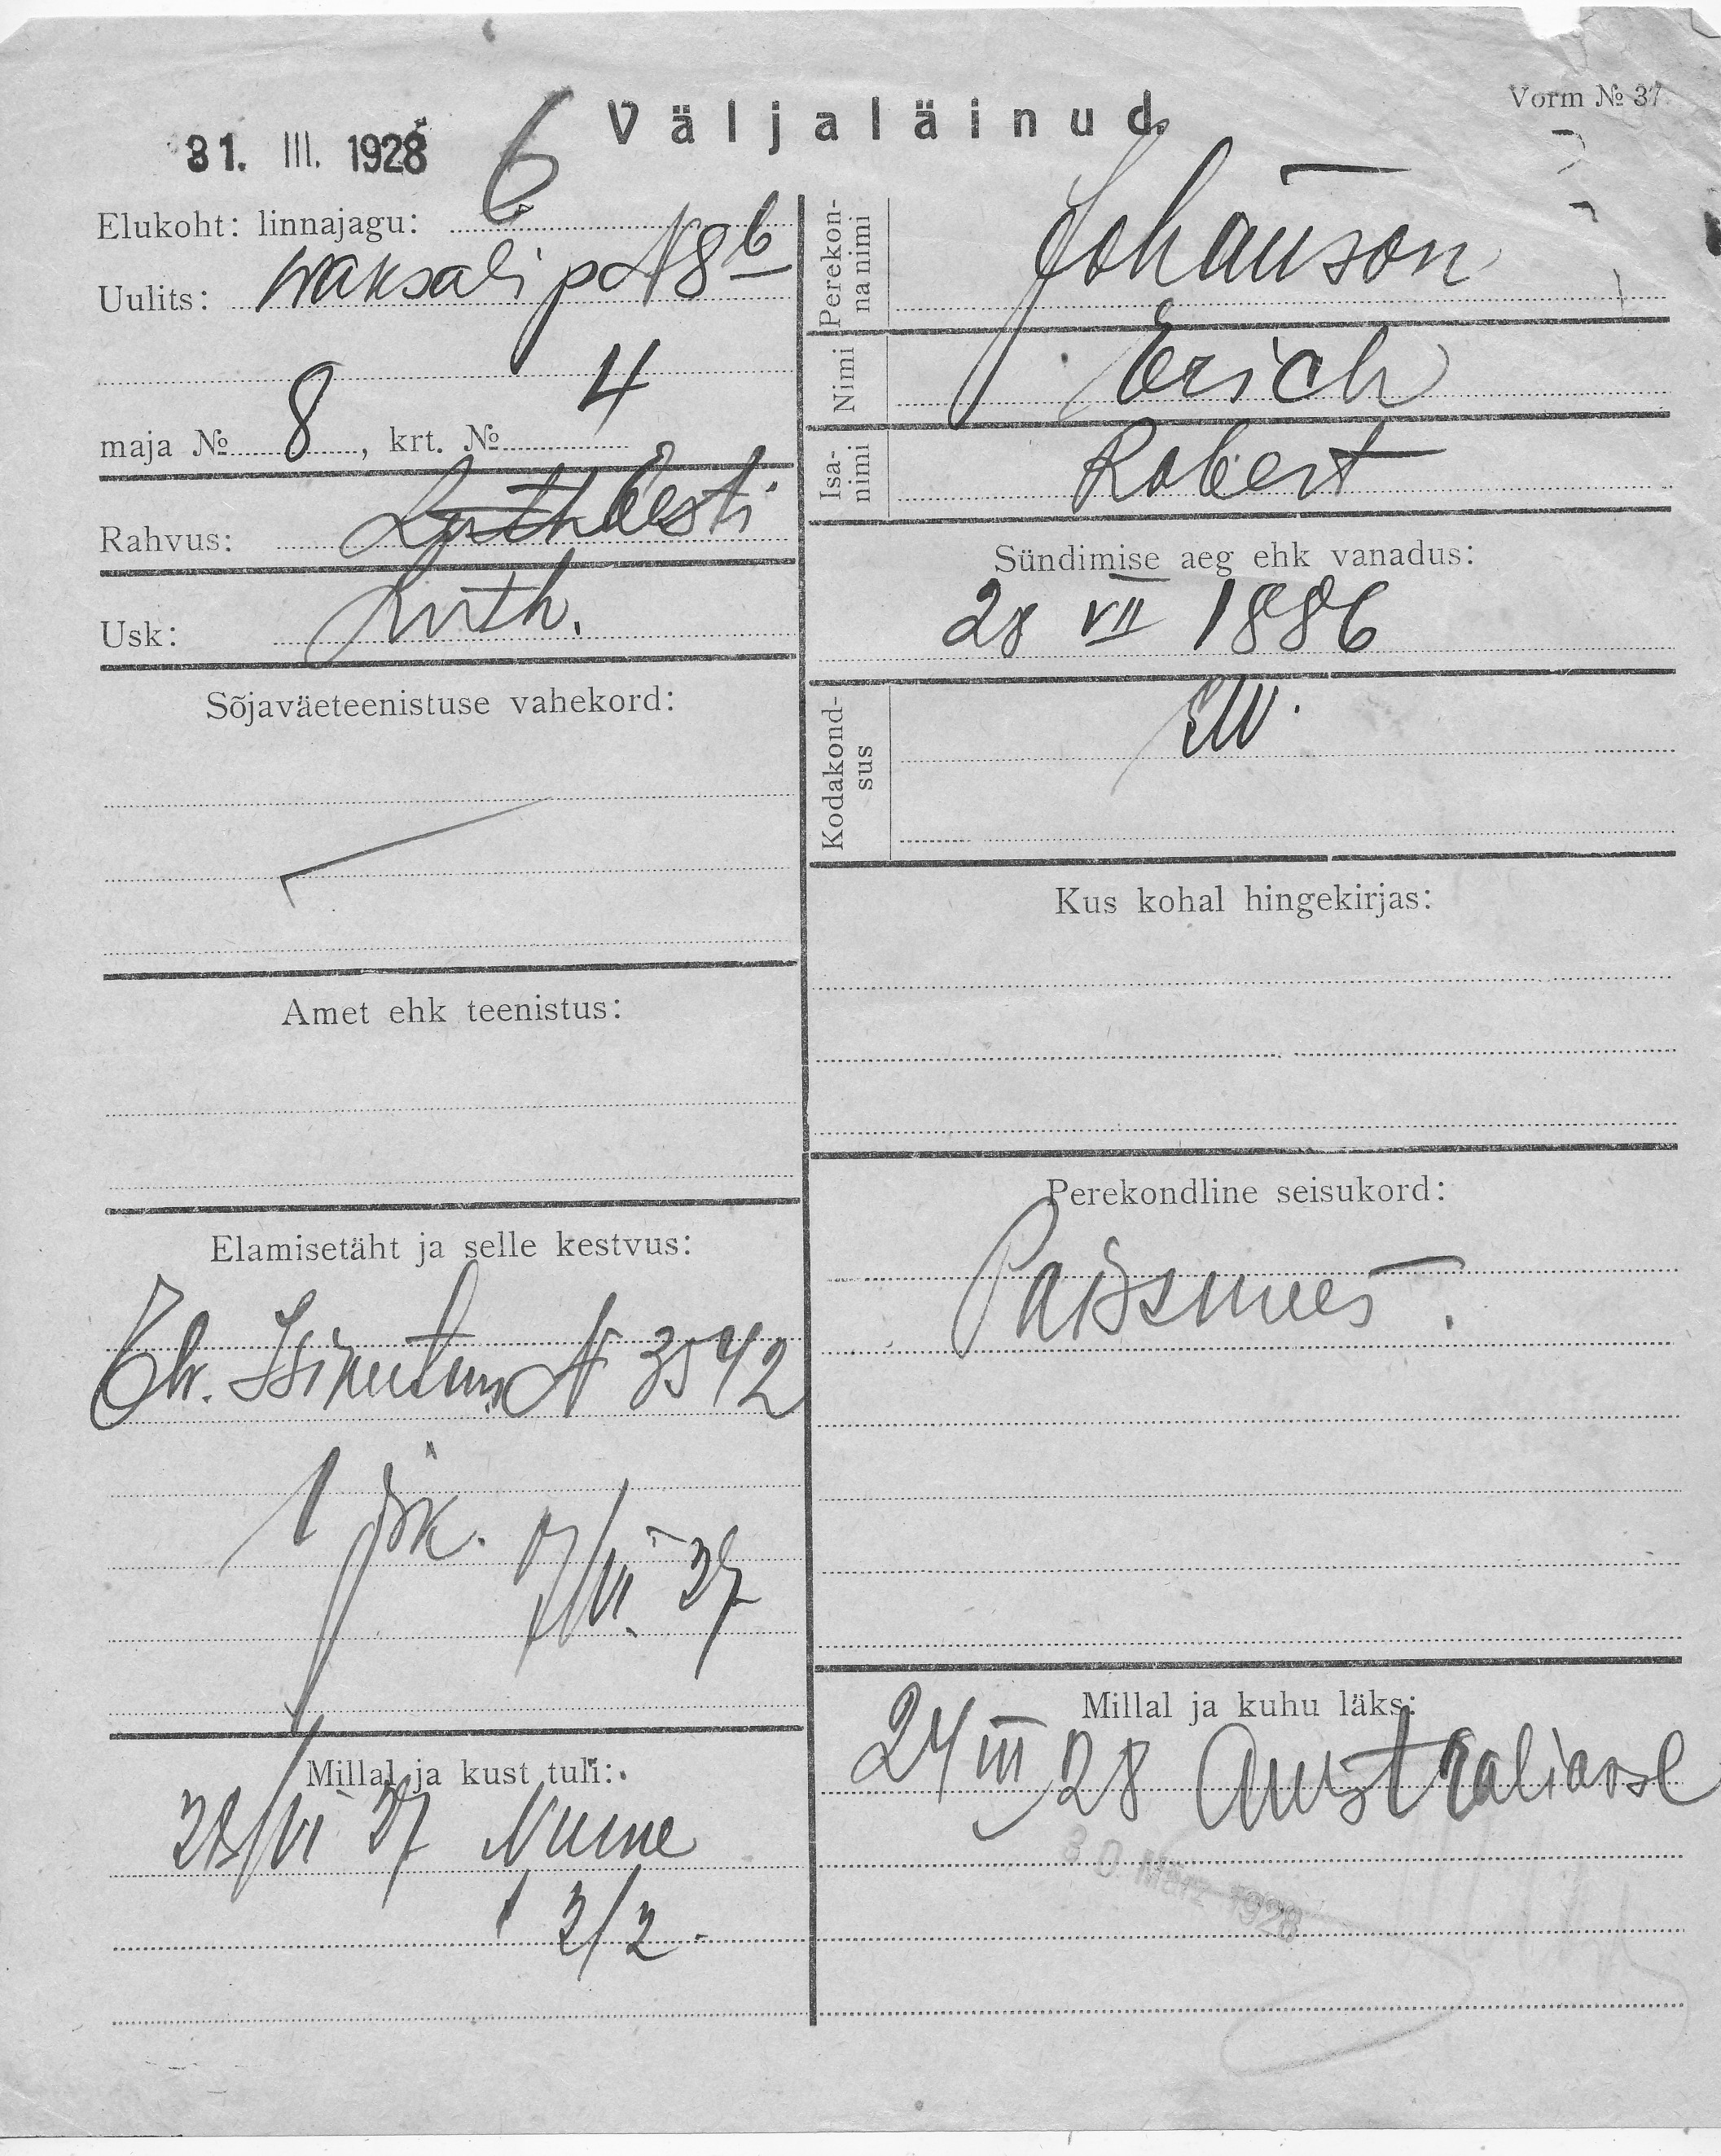 Vorm № 37
Väljaläinud.
31. III. 1928
Elukoht: linnajagu: 6
Uulits: Waksali p N 8 b
maja № 8, krt. № 4
Rahvus: Luth Eesti
Usk: Luth.
Sõjaväeteenistuse vahekord:
Amet ehk teenistus:
Elamisetäht ja selle kestvus:
N 3542
1 jsk. 7/VI 37
Millal ja kust tuli:
28/VI 37 Nurme
3/2.
Perekonna nimi
Johanson
Nimi
Erich
Isanimi
Robert
Sündimise aeg ehk vanadus:
28 VII 1886
Kodakondsus
EW.
Kus kohal hingekirjas:
Perekondline seisukord:
Poissmees.
Millal ja kuhu läks:
24 III 28 Australiasse
30 März 1928